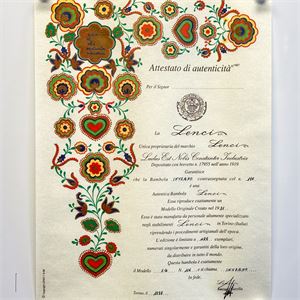 Attestato di autenticità
Per il Signor
La Lenci
Unica proprietaria del marchio Lenci
Ludus Est Nobis Constanter Industria
Depositato con brevetto n. 17855 nell'anno 1919
Garantisce
che la Bambola contrassegnata col n.
è una
Autentica Bambola Lenci
Essa riproduce esattamente un
Modello Originale Creato nel
Essa è stata manufatta da personale altamente specializzato
negli stabilimenti Lenci in Torino (Italia)
riprendendo i procedimenti artigianali dell'epoca.
L'edizione è limitata a esemplari,
numerati singolarmente e garantiti della loro origine,
da distribuire in tutto il mondo.
Questa bambola è esattamente
il Modello n. e si chiama
In fede.
Torino, il